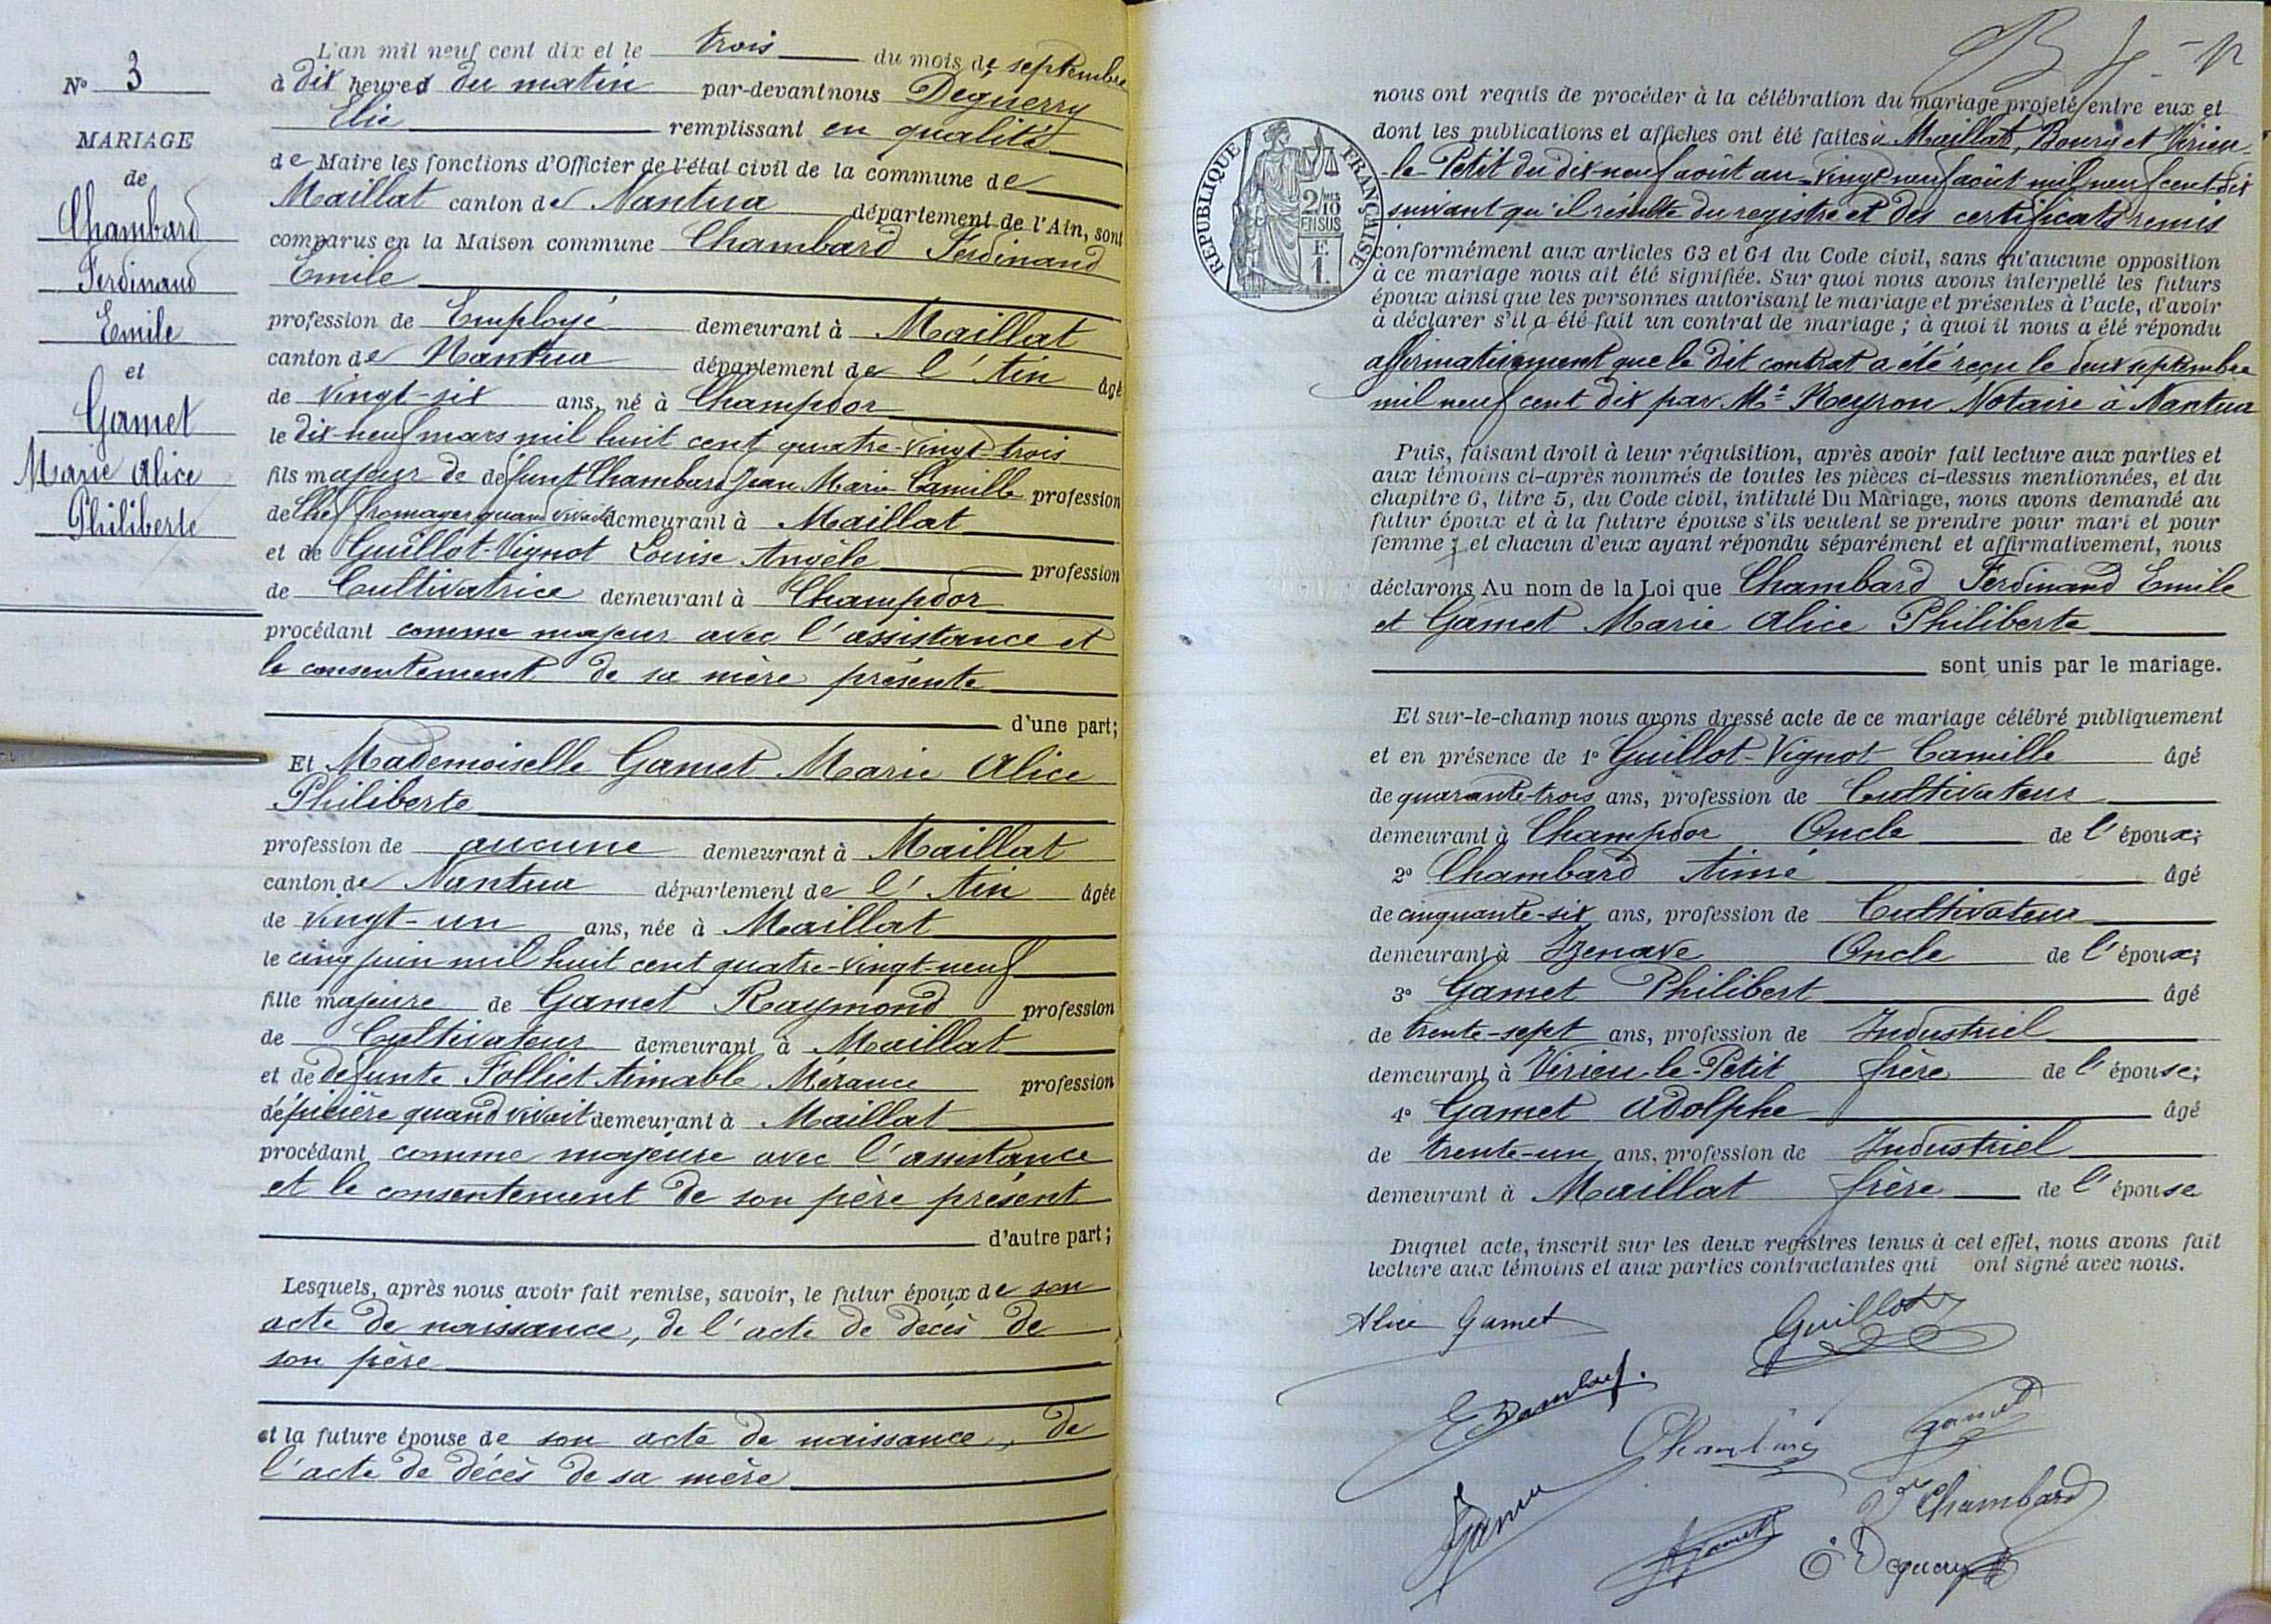 N° 3
MARIAGE
de
Chambard
Ferdinand
Emile
et
Gamet
Marie Alice
Philiberte
L'an mil neuf cent dix et le trois du mois de septembre
à dix heures du matin par-devant nous Deguerry
Elie remplissant en qualité
de Maire les fonctions d'Officier de l'état civil de la commune de
Maillat canton de Nantua département de l'Ain, sont
comparus en la Maison commune Chambard Ferdinand
Emile
profession de Employé demeurant à Maillat
canton de Nantua département de l'Ain âgé
de vingt-six ans, né à Champdor
le dix neuf mars mil huit cent quatre-vingt-trois
fils majeur de défunt Chambard Jean Marie Camille profession
de Chef fromager quand vivait demeurant à Maillat
et de Guillot-Vignot Louise Angèle profession
de Cultivatrice demeurant à Champdor
procédant comme majeur avec l'assistance et
le consentement de sa mère présente
d'une part;
Et Mademoiselle Gamet Marie Alice
Philiberte
profession de aucune demeurant à Maillat
canton de Nantua département de l'Ain âgée
de vingt-un ans, née à Maillat
le cinq juin mil huit cent quatre-vingt-neuf
fille majeure de Gamet Raymond profession
de Cultivateur demeurant à Maillat
et de défunte Folliet Aimable Mérance profession
d'épicière quand vivait demeurant à Maillat
procédant comme majeure avec l'assistance
et le consentement de son père présent
d'autre part;
Lesquels, après nous avoir fait remise, savoir, le futur époux de son
acte de naissance, de l'acte de décès de
son père
et la future épouse de son acte de naissance, de
l'acte de décès de sa mère
nous ont requis de procéder à la célébration du mariage projeté entre eux et
dont les publications et affiches ont été faites à Maillat, Bourg et Virieu
le-Petit du dix neuf août au vingt neuf août mil neuf cent dix
suivant qu'il résulte du registre et des certificats remis
RÉPUBLIQUE FRANÇAISE
2/10
EN SUS
F.
1.
conformément aux articles 63 et 64 du Code civil, sans qu'aucune opposition
à ce mariage nous ait été signifiée. Sur quoi nous avons interpellé les futurs
époux ainsi que les personnes autorisant le mariage et présentes à l'acte, d'avoir
à déclarer s'il a été fait un contrat de mariage; à quoi il nous a été répondu
affirmativement que le dit contrat a été reçu le deux septembre
mil neuf cent dix par Me Reyron Notaire à Nantua
Puis, faisant droit à leur réquisition, après avoir fait lecture aux parties et
aux témoins ci-après nommés de toutes les pièces ci-dessus mentionnées, et du
chapitre 6, titre 5, du Code civil, intitulé Du Mariage, nous avons demandé au
futur époux et à la future épouse s'ils veulent se prendre pour mari et pour
femme; et chacun d'eux ayant répondu séparément et affirmativement, nous
déclarons Au nom de la Loi que Chambard Ferdinand Emile
et Gamet Marie Alice Philiberte
sont unis par le mariage.
Et sur-le-champ nous avons dressé acte de ce mariage célébré publiquement
et en présence de 1° Guillot-Vignot Camille âgé
de quarante-trois ans, profession de Cultivateur
demeurant à Champdor Oncle de l'époux;
2° Chambard Aimé âgé
de cinquante-six ans, profession de Cultivateur
demeurant à Izenave Oncle de l'époux;
3° Gamet Philibert âgé
de trente-sept ans, profession de Industriel
demeurant à Virieu-le-Petit frère de l'épouse;
4° Gamet Adolphe âgé
de trente-un ans, profession de Industriel
demeurant à Maillat frère de l'épouse
Duquel acte, inscrit sur les deux registres tenus à cet effet, nous avons fait
lecture aux témoins et aux parties contractantes qui ont signé avec nous.
Alice Gamet
Guillot
Chambard
Gamet
Gamet
Gamet
Chambard
Deguerry